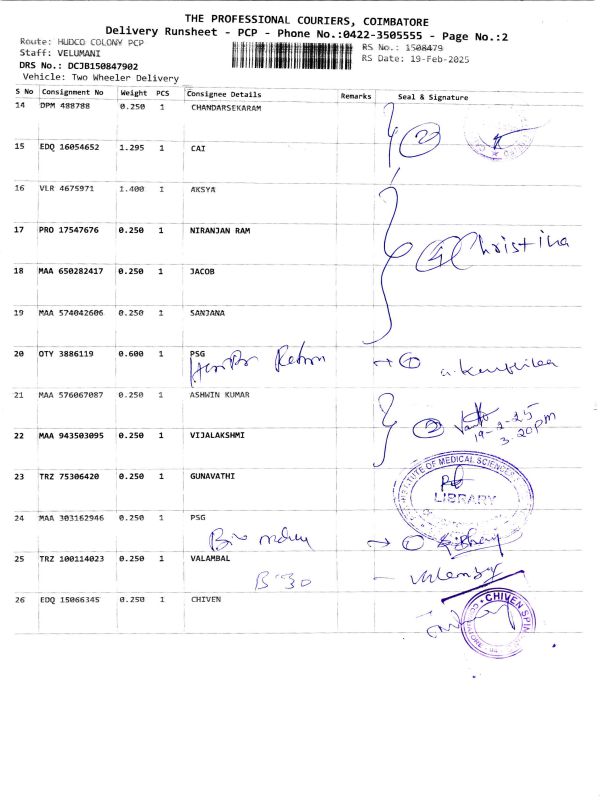 THE PROFESSIONAL COURIERS, COIMBATORE
Delivery Runsheet - PCP - Phone No.:0422-3505555 - Page No.:2
Route: HUDCO COLONY PCP
RS No.: 1508479
Staff: VELUMANI
RS Date: 19-Feb-2025
DRS No.: DCJB150847902
Vehicle: Two Wheeler Delivery
S No Consignment No Weight PCS Consignee Details Remarks Seal & Signature
14 DPM 488788 0.250 1 CHANDARSEKARAM
15 EDQ 16054652 1.295 1 CAI
16 VLR 4675971 1.400 1 AKSYA
17 PRO 17547676 0.250 1 NIRANJAN RAM
Christina
18 MAA 650282417 0.250 1 JACOB
19 MAA 574042606 0.250 1 SANJANA
20 OTY 3886119 0.600 1 PSG
21 MAA 576067087 0.250 1 ASHWIN KUMAR
19-2-25
3.20pm
22 MAA 943503095 0.250 1 VIJALAKSHMI
23 TRZ 75306420 0.250 1 GUNAVATHI
INSTITUTE OF MEDICAL SCIENCES
LIBRARY
24 MAA 303162946 0.250 1 PSG
25 TRZ 100114023 0.250 1 VALAMBAL
26 EDQ 15066345 0.250 1 CHIVEN
CHIVEN SPIN